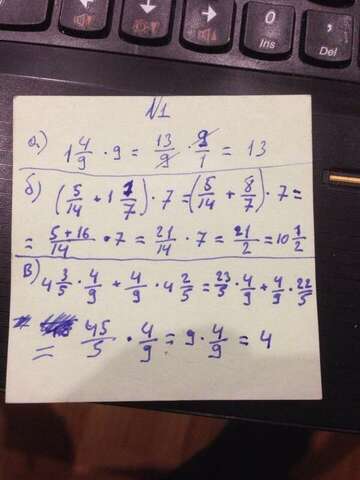 0
Ins
.
Del
N1
а) 1 4/9 · 9 = 13/9 · 9/1 = 13
б) (5/14 + 1 1/7) · 7 = (5/14 + 8/7) · 7 =
= 5+16/14 · 7 = 21/14 · 7 = 21/2 = 10 1/2
в) 4 3/5 · 4/9 + 4/9 · 4 2/5 = 23/5 · 4/9 + 4/9 · 22/5
= 45/5 · 4/9 = 9 · 4/9 = 4